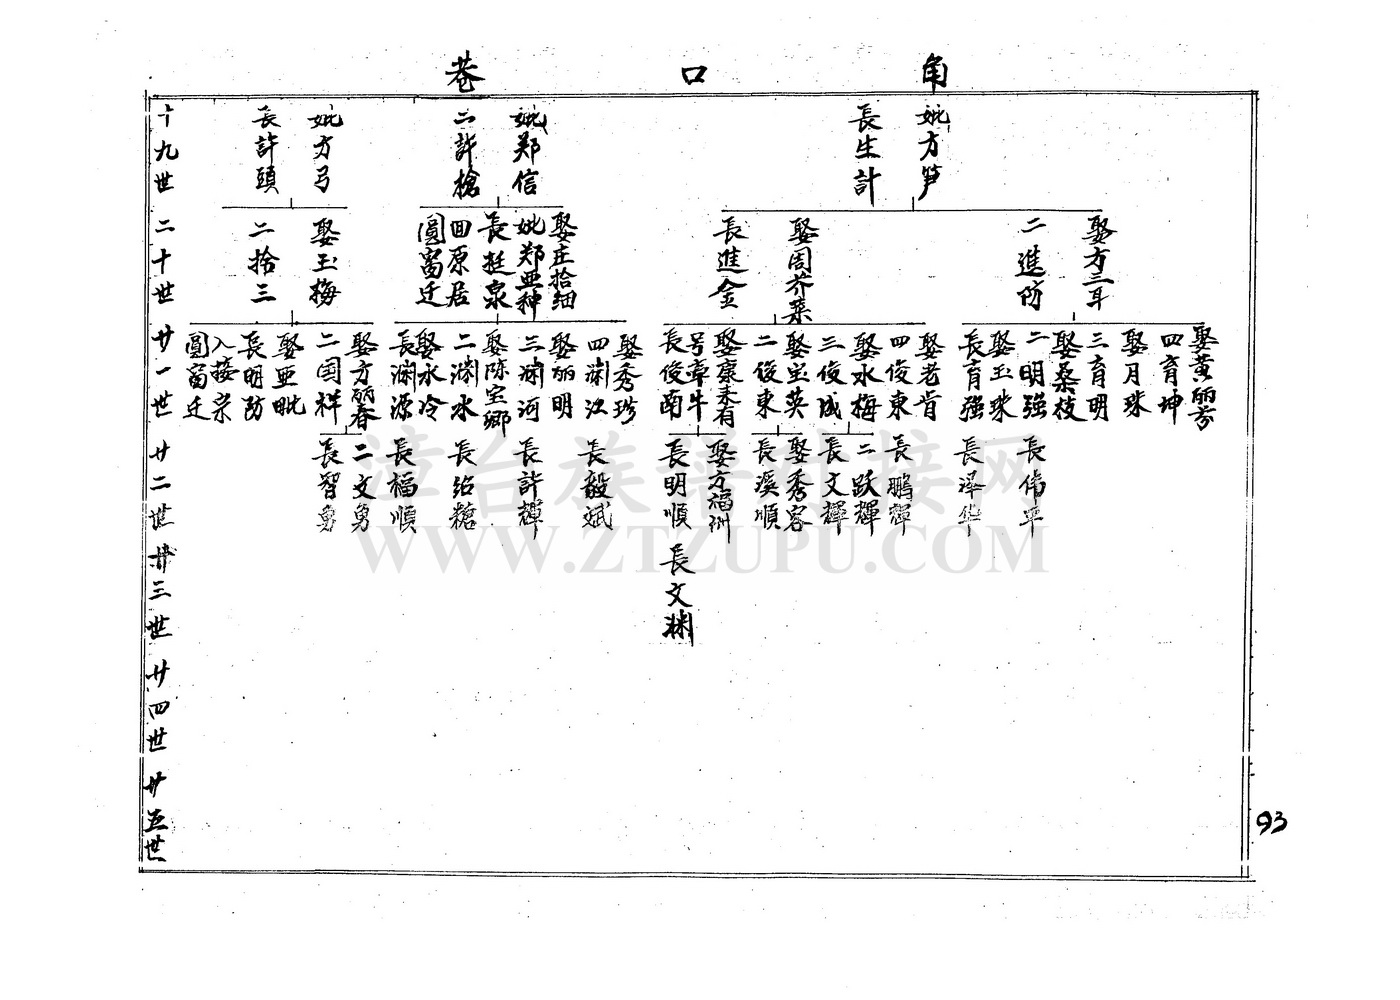 角口巷
十九世
妣方笋
長生計
妣郑信
二許槍
妣方弓
長許頭
二十世
娶方三耳
二進防
娶周芥菜
長進金
娶庄拾细
妣郑亜种
長挺泉
回原居
圓窗迁
娶玉梅
二捨三
廿一世
娶黄丽芬
四育坤
娶月珠
三育明
娶桑枝
二明强
娶玉珠
長育强
娶老肯
四俊東
娶水梅
三俊成
娶宝英
二俊東
娶康未有
号章牛
長俊南
娶秀珍
四渊江
娶丽明
三渊河
娶陈宝卿
二渊水
娶永冷
長渊源
娶方丽春
二国祥
娶亜毗
長明防
入接宗
圓窗迁
廿二世
長伟平
長泽华
長鹏輝
二跃輝
長文輝
娶秀容
長溪順
娶方福洲
長明順
長毅斌
長許輝
長绍糖
長福順
二文勇
長智勇
廿三世
長文渊
廿四世
廿五世
93
漳台族谱对接网
WWW.ZTZUPU.COM